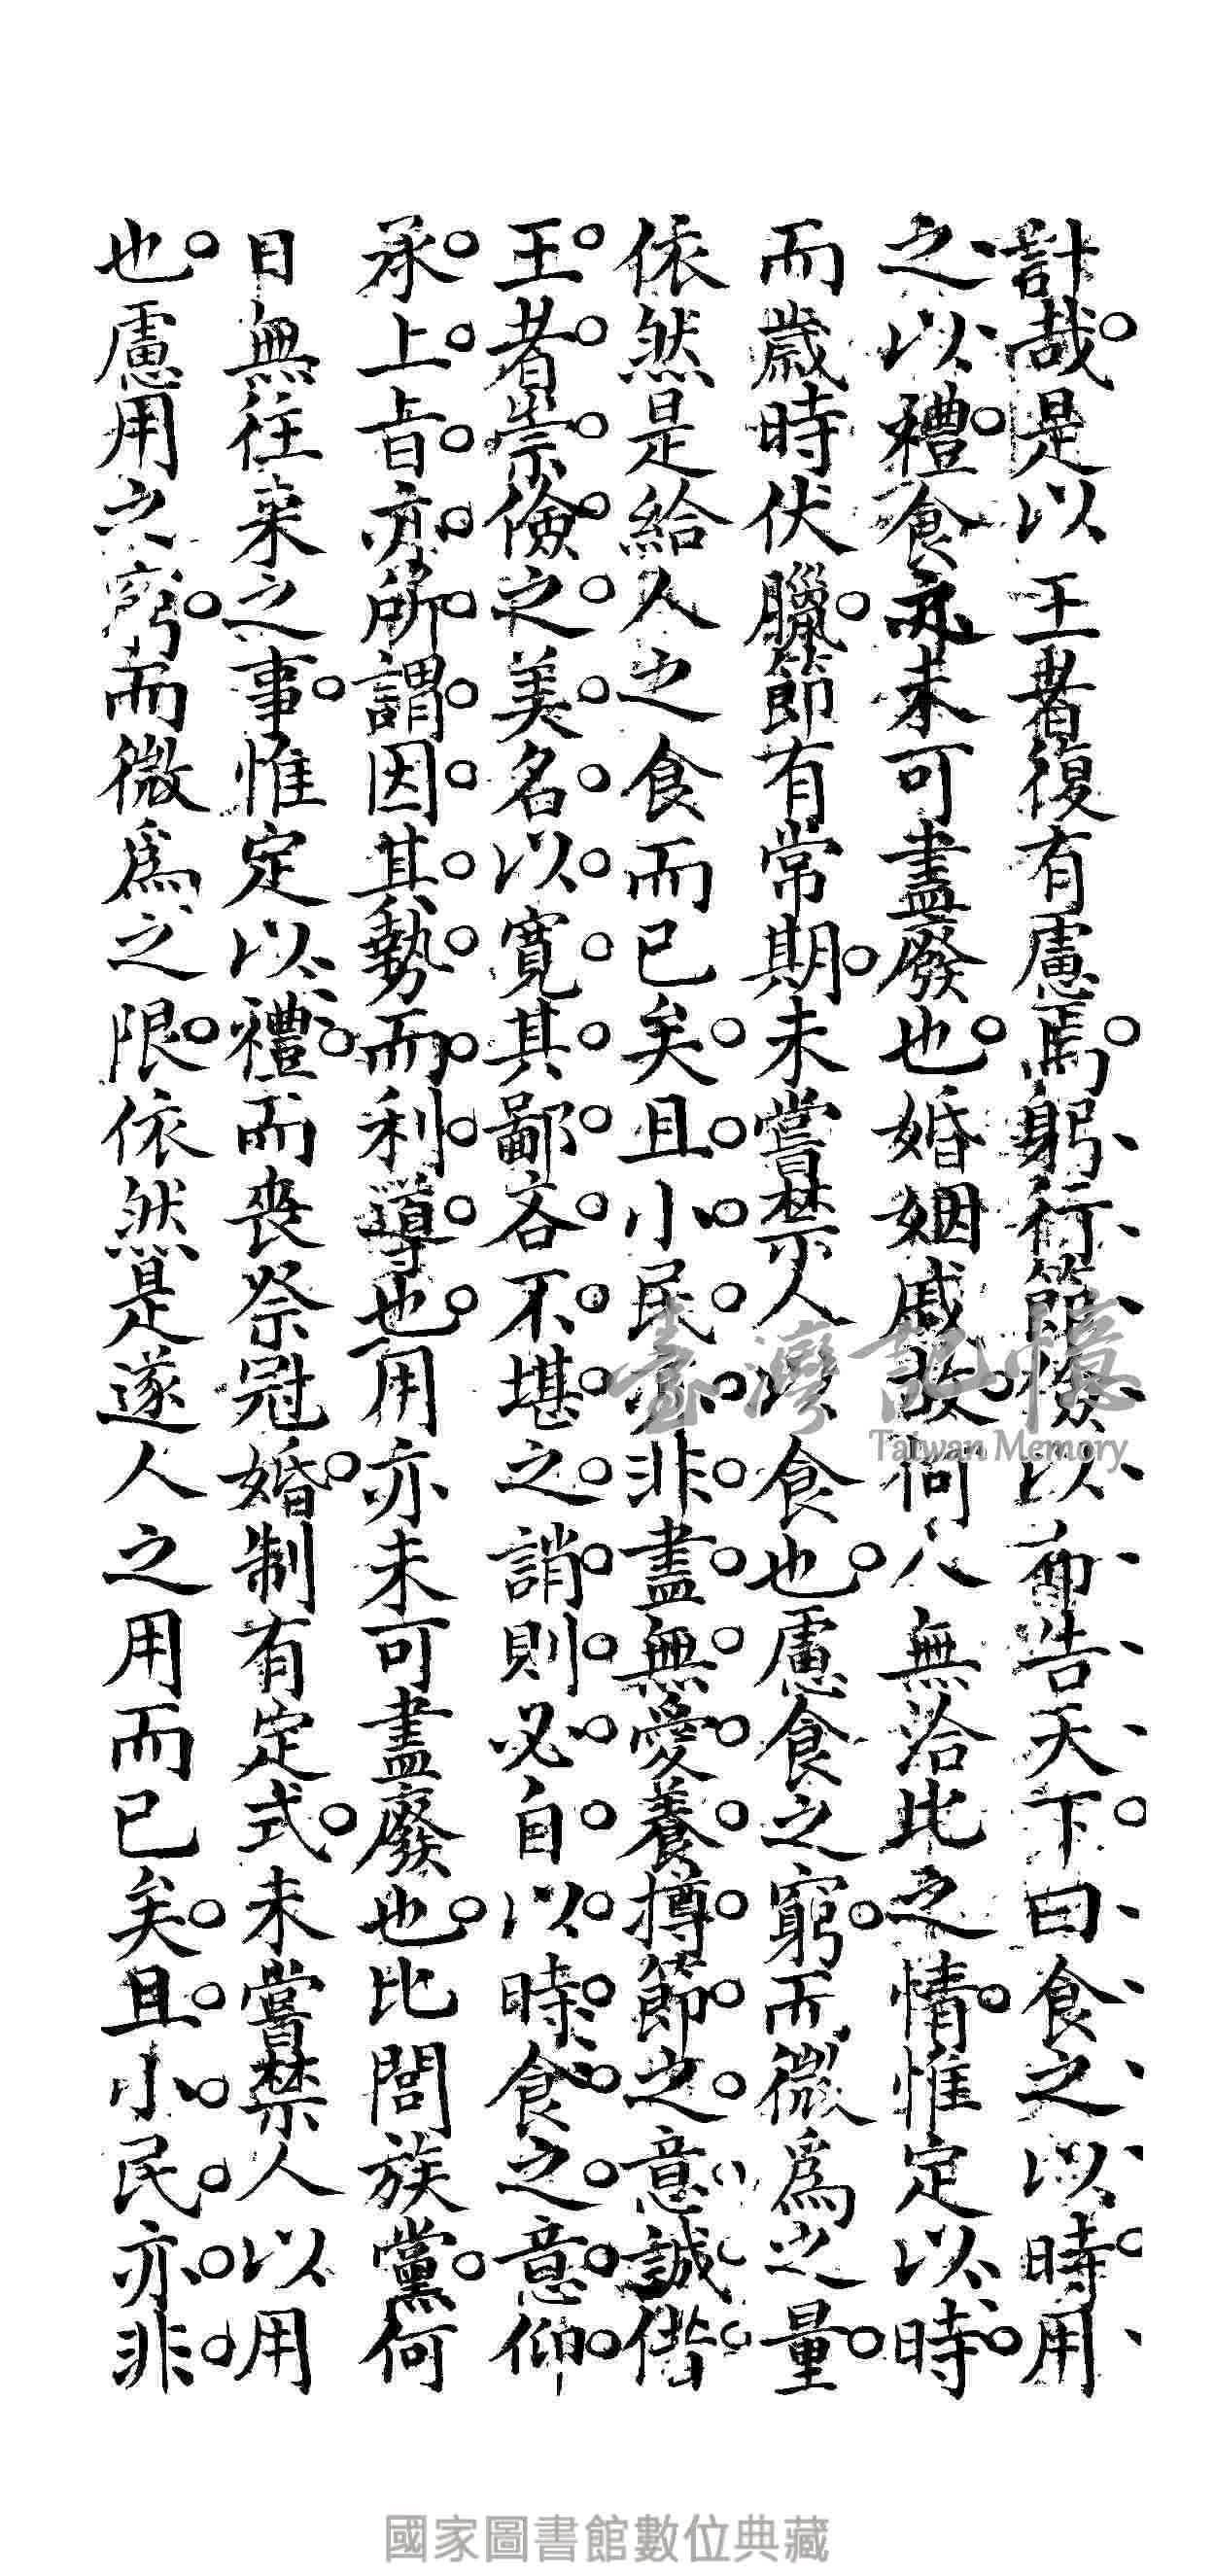 計哉是以王者復有慮焉躬行節儉以布告天下曰食之以時用
之以禮食亦未可盡廢也婚姻戚故何人無洽比之情惟定以時
而歲時伏臘節有常期未嘗禁人以食也慮食之窮而微為之量
依然是給人之食而已矣且小民亦非盡無愛養撙節之意誠偕
王者崇儉之美名以寬其鄙吝不堪之誚則必自以時食之意仰
承上旨亦所謂因其勢而利導也用亦未可盡廢也比閭族黨何
日無往來之事惟定以禮而喪祭冠婚制有定式未嘗禁人以用
也慮用之窮而微為之限依然是遂人之用而已矣且小民亦非
臺灣記憶
Taiwan Memory
國家圖書館數位典藏